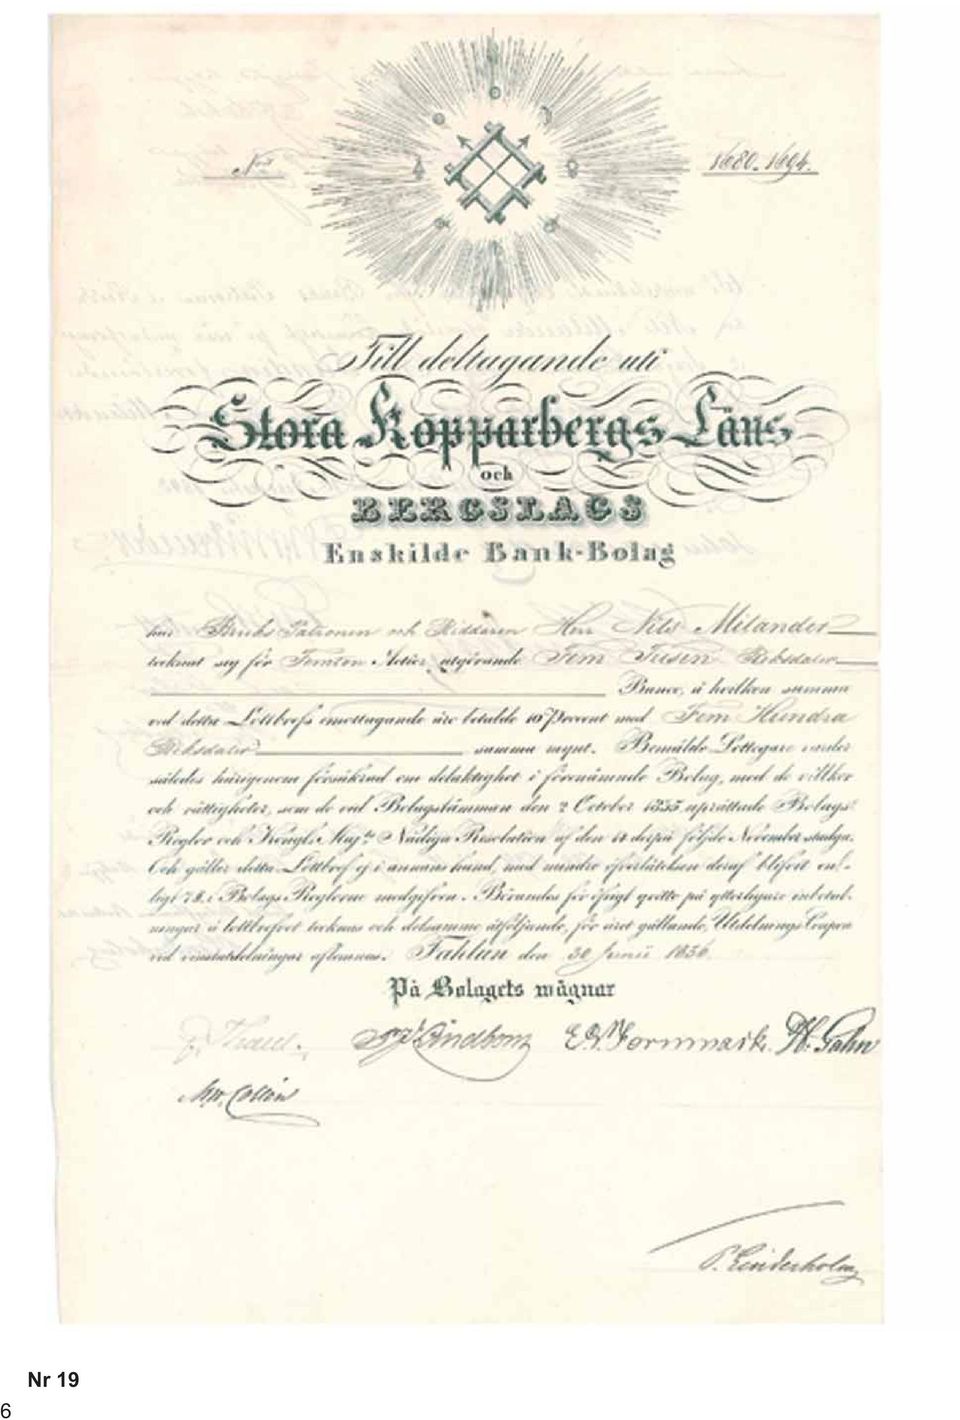 Nris 1680-1694.
Till deltagande uti
Stora Kopparbergs Läns
och
BERGSLAGS
Enskilde Bank-Bolag
har Bruks Patronen och Riddaren Herr Nils Milander
tecknat sig för Femton Actier, utgörande Fem Tusen Riksdaler
Banco, å hvilken summa
vid detta Lottbrefs emottagande äro betalde 10 Procent med Fem Hundra
Riksdaler samma mynt. Bemälde Lottegare varder
således härigenom försäkrad om delaktighet i förenämnde Bolag, med de villkor
och rättigheter, som de vid Bolagsstämman den 2 October 1835 uprättade Bolags
Reglor och Kongl. Maj:ts Nådiga Resolution af den 14 derpå följde November stadga.
Och gäller detta Lottbref ej i annans hand, med mindre öfverlåtelsen deraf blifvit en-
ligt 7 §. i Bolags Reglorne medgifven. Börandes för öfrigt qvitto på ytterligare inbetal-
ningar å lottbrefvet tecknas och detsamma åtföljande, för året gällande, Utdelnings Coupon
vid vinstutdelningar aflemnas. Fahlun den 30 Junii 1836.
På Bolagets wägnar
Lindbom E. Fornmark H. Gahn
P. Linderholm
Nr 19
6